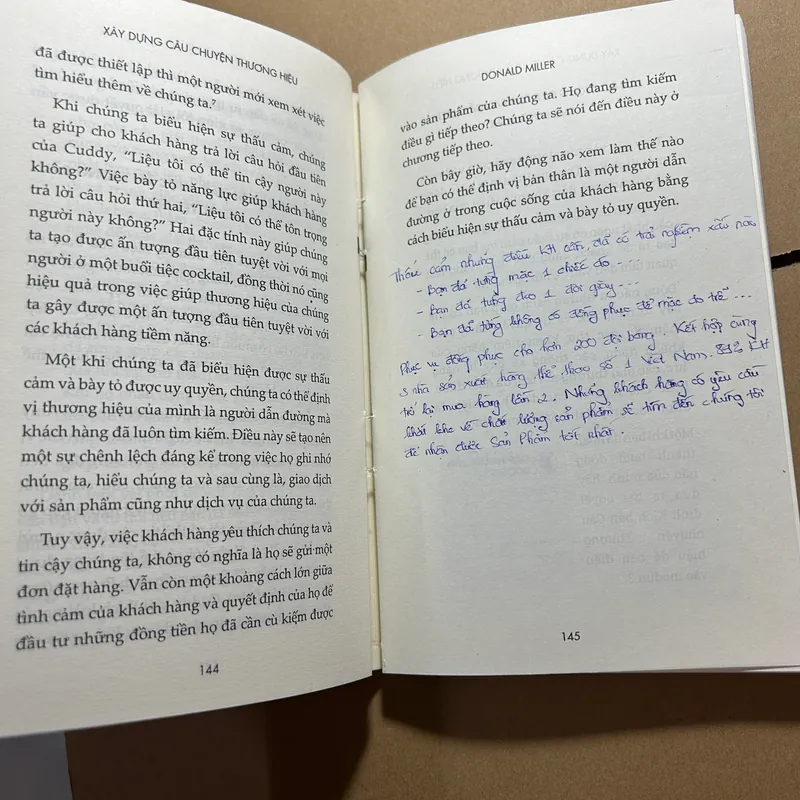 XÂY DỰNG CÂU CHUYỆN THƯƠNG HIỆU
đã được thiết lập thì một người mới xem xét việc
tìm hiểu thêm về chúng ta.⁷
Khi chúng ta biểu hiện sự thấu cảm, chúng
ta giúp cho khách hàng trả lời câu hỏi đầu tiên
của Cuddy, “Liệu tôi có thể tin cậy người này
không?” Việc bày tỏ năng lực giúp khách hàng
trả lời câu hỏi thứ hai, “Liệu tôi có thể tôn trọng
người này không?” Hai đặc tính này giúp chúng
ta tạo được ấn tượng đầu tiên tuyệt vời với mọi
người ở một buổi tiệc cocktail, đồng thời nó cũng
hiệu quả trong việc giúp thương hiệu của chúng
ta gây được một ấn tượng đầu tiên tuyệt vời với
các khách hàng tiềm năng.
Một khi chúng ta đã biểu hiện được sự thấu
cảm và bày tỏ được uy quyền, chúng ta có thể định
vị thương hiệu của mình là người dẫn đường mà
khách hàng đã luôn tìm kiếm. Điều này sẽ tạo nên
một sự chênh lệch đáng kể trong việc họ ghi nhớ
chúng ta, hiểu chúng ta và sau cùng là, giao dịch
với sản phẩm cũng như dịch vụ của chúng ta.
Tuy vậy, việc khách hàng yêu thích chúng ta và
tin cậy chúng ta, không có nghĩa là họ sẽ gửi một
đơn đặt hàng. Vẫn còn một khoảng cách lớn giữa
tình cảm của khách hàng và quyết định của họ để
đầu tư những đồng tiền họ đã cần cù kiếm được
144
DONALD MILLER
vào sản phẩm của chúng ta. Họ đang tìm kiếm
điều gì tiếp theo? Chúng ta sẽ nói đến điều này ở
chương tiếp theo.
Còn bây giờ, hãy động não xem làm thế nào
để bạn có thể định vị bản thân là một người dẫn
đường ở trong cuộc sống của khách hàng bằng
cách biểu hiện sự thấu cảm và bày tỏ uy quyền.
Thấu cảm những điều KH cần, đã có trải nghiệm xấu nào
- Bạn đã từng mặc 1 chiếc áo ...
- Bạn đã từng đeo 1 đôi giày ...
- Bạn đã từng không có đồng phục để mặc do trễ ...
Phục vụ đồng phục cho hơn 200 đội bóng. Kết hợp cùng
3 nhà sản xuất hàng thể thao số 1 Việt Nam. KH
trở lại mua hàng lần 2. Những khách hàng có yêu cầu
khắt khe về chất lượng sản phẩm sẽ tìm đến chúng tôi
để nhận được Sản Phẩm tốt nhất.
145